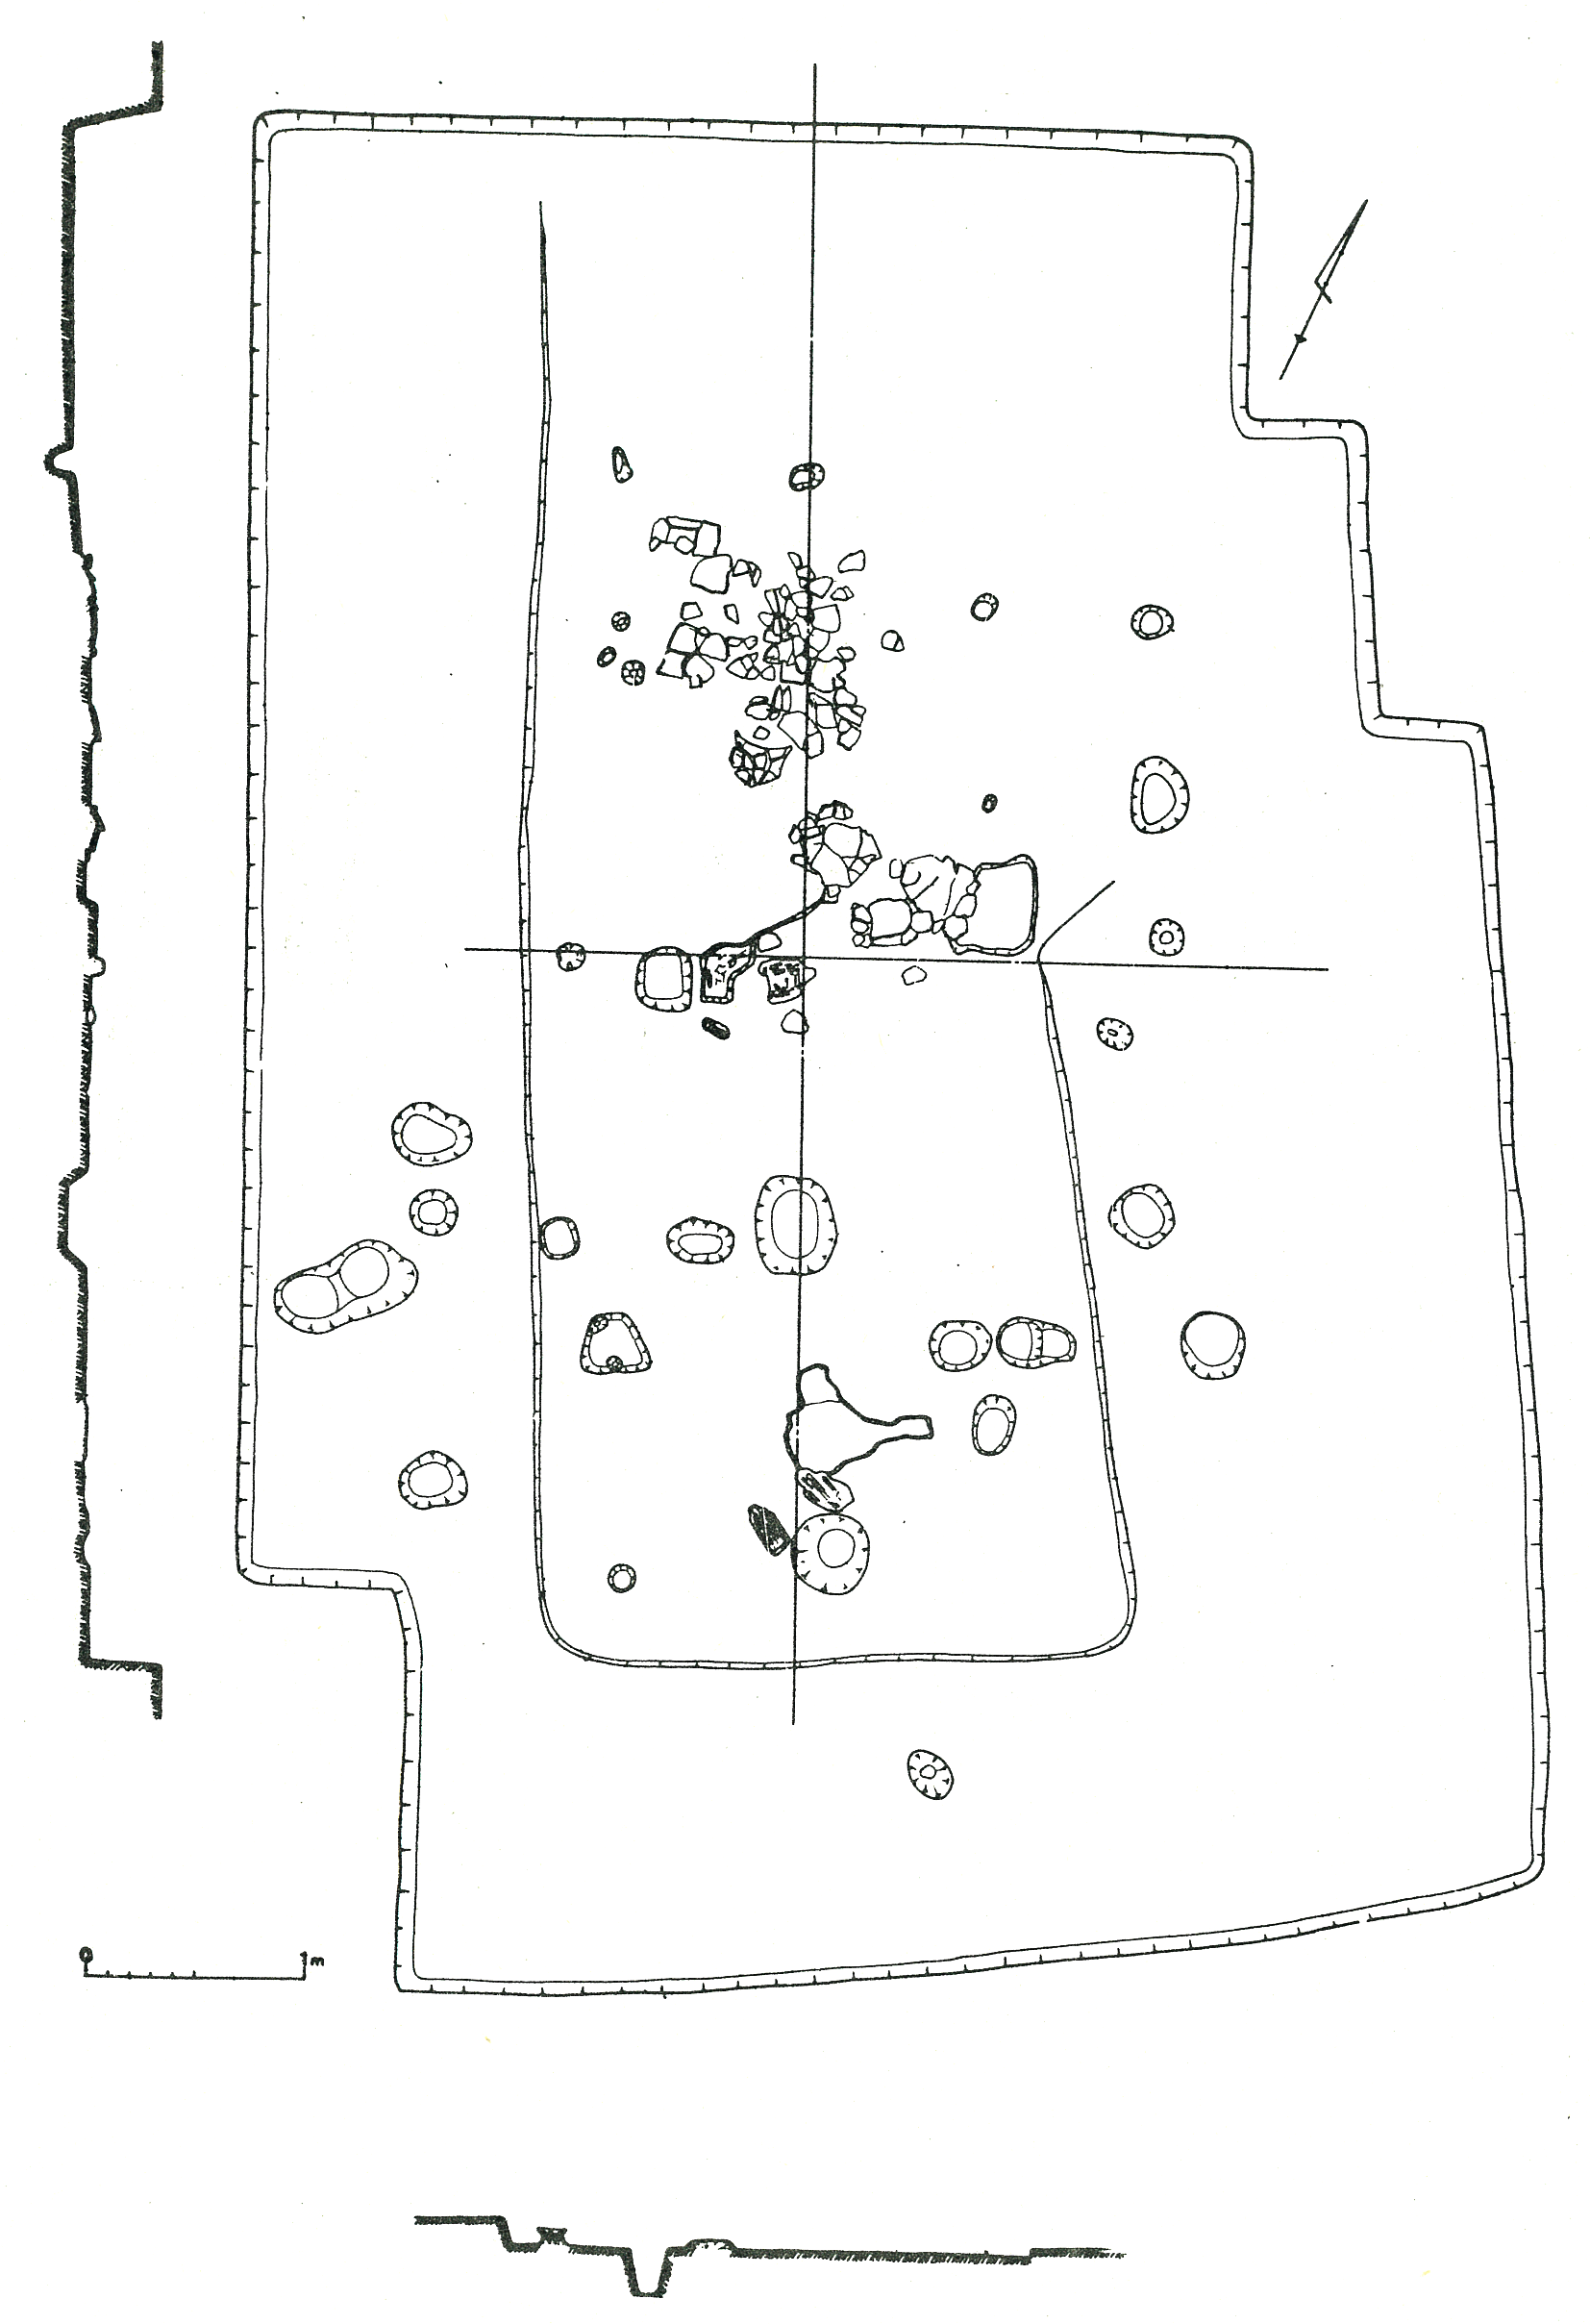 0 1m